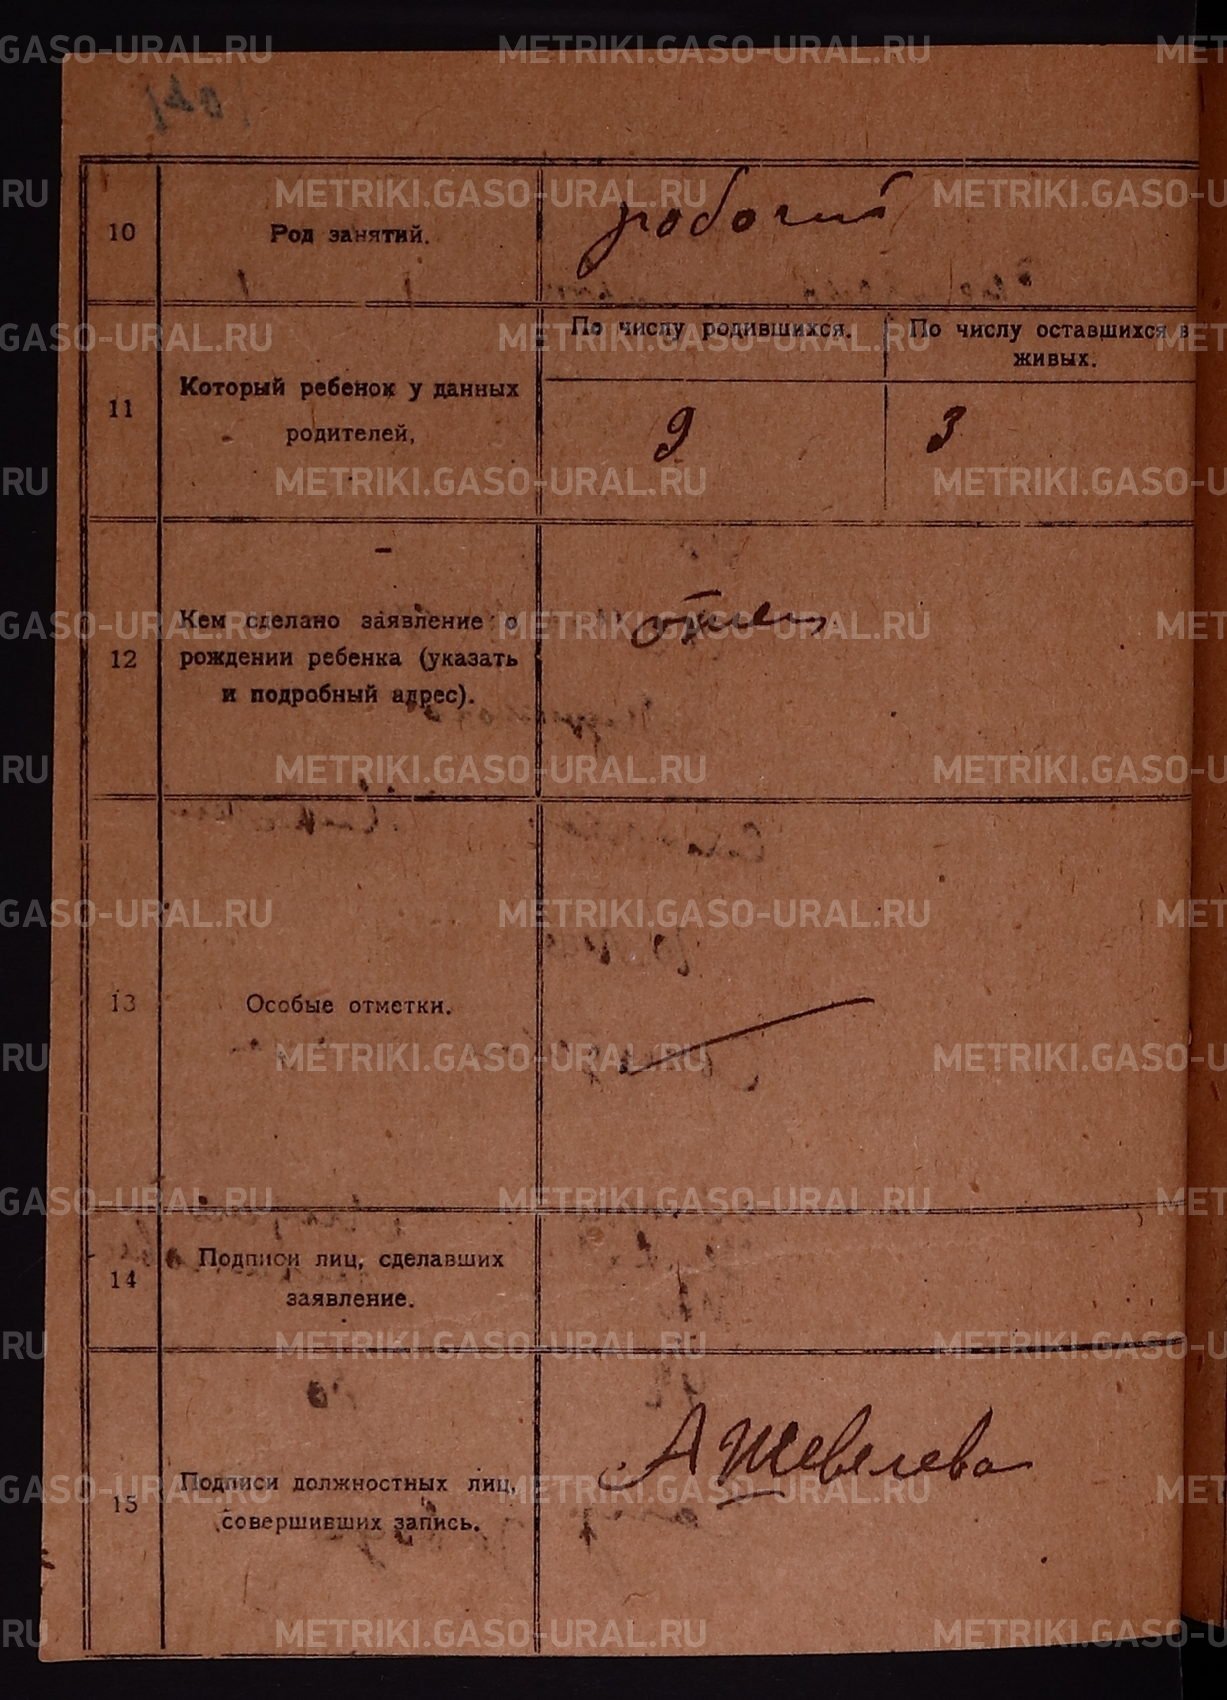 10
Род занятий.
рабочий
11
Который ребенок у данных
родителей,
По числу родившихся.
По числу оставшихся в
живых.
9
3
12
Кем сделано заявление о
рождении ребенка (указать
и подробный адрес).
отец
13
Особые отметки.
14
Подписи лиц, сделавших
заявление.
15
Подписи должностных лиц,
совершивших запись.
А Шевелева
METRIKI.GASO-URAL.RU